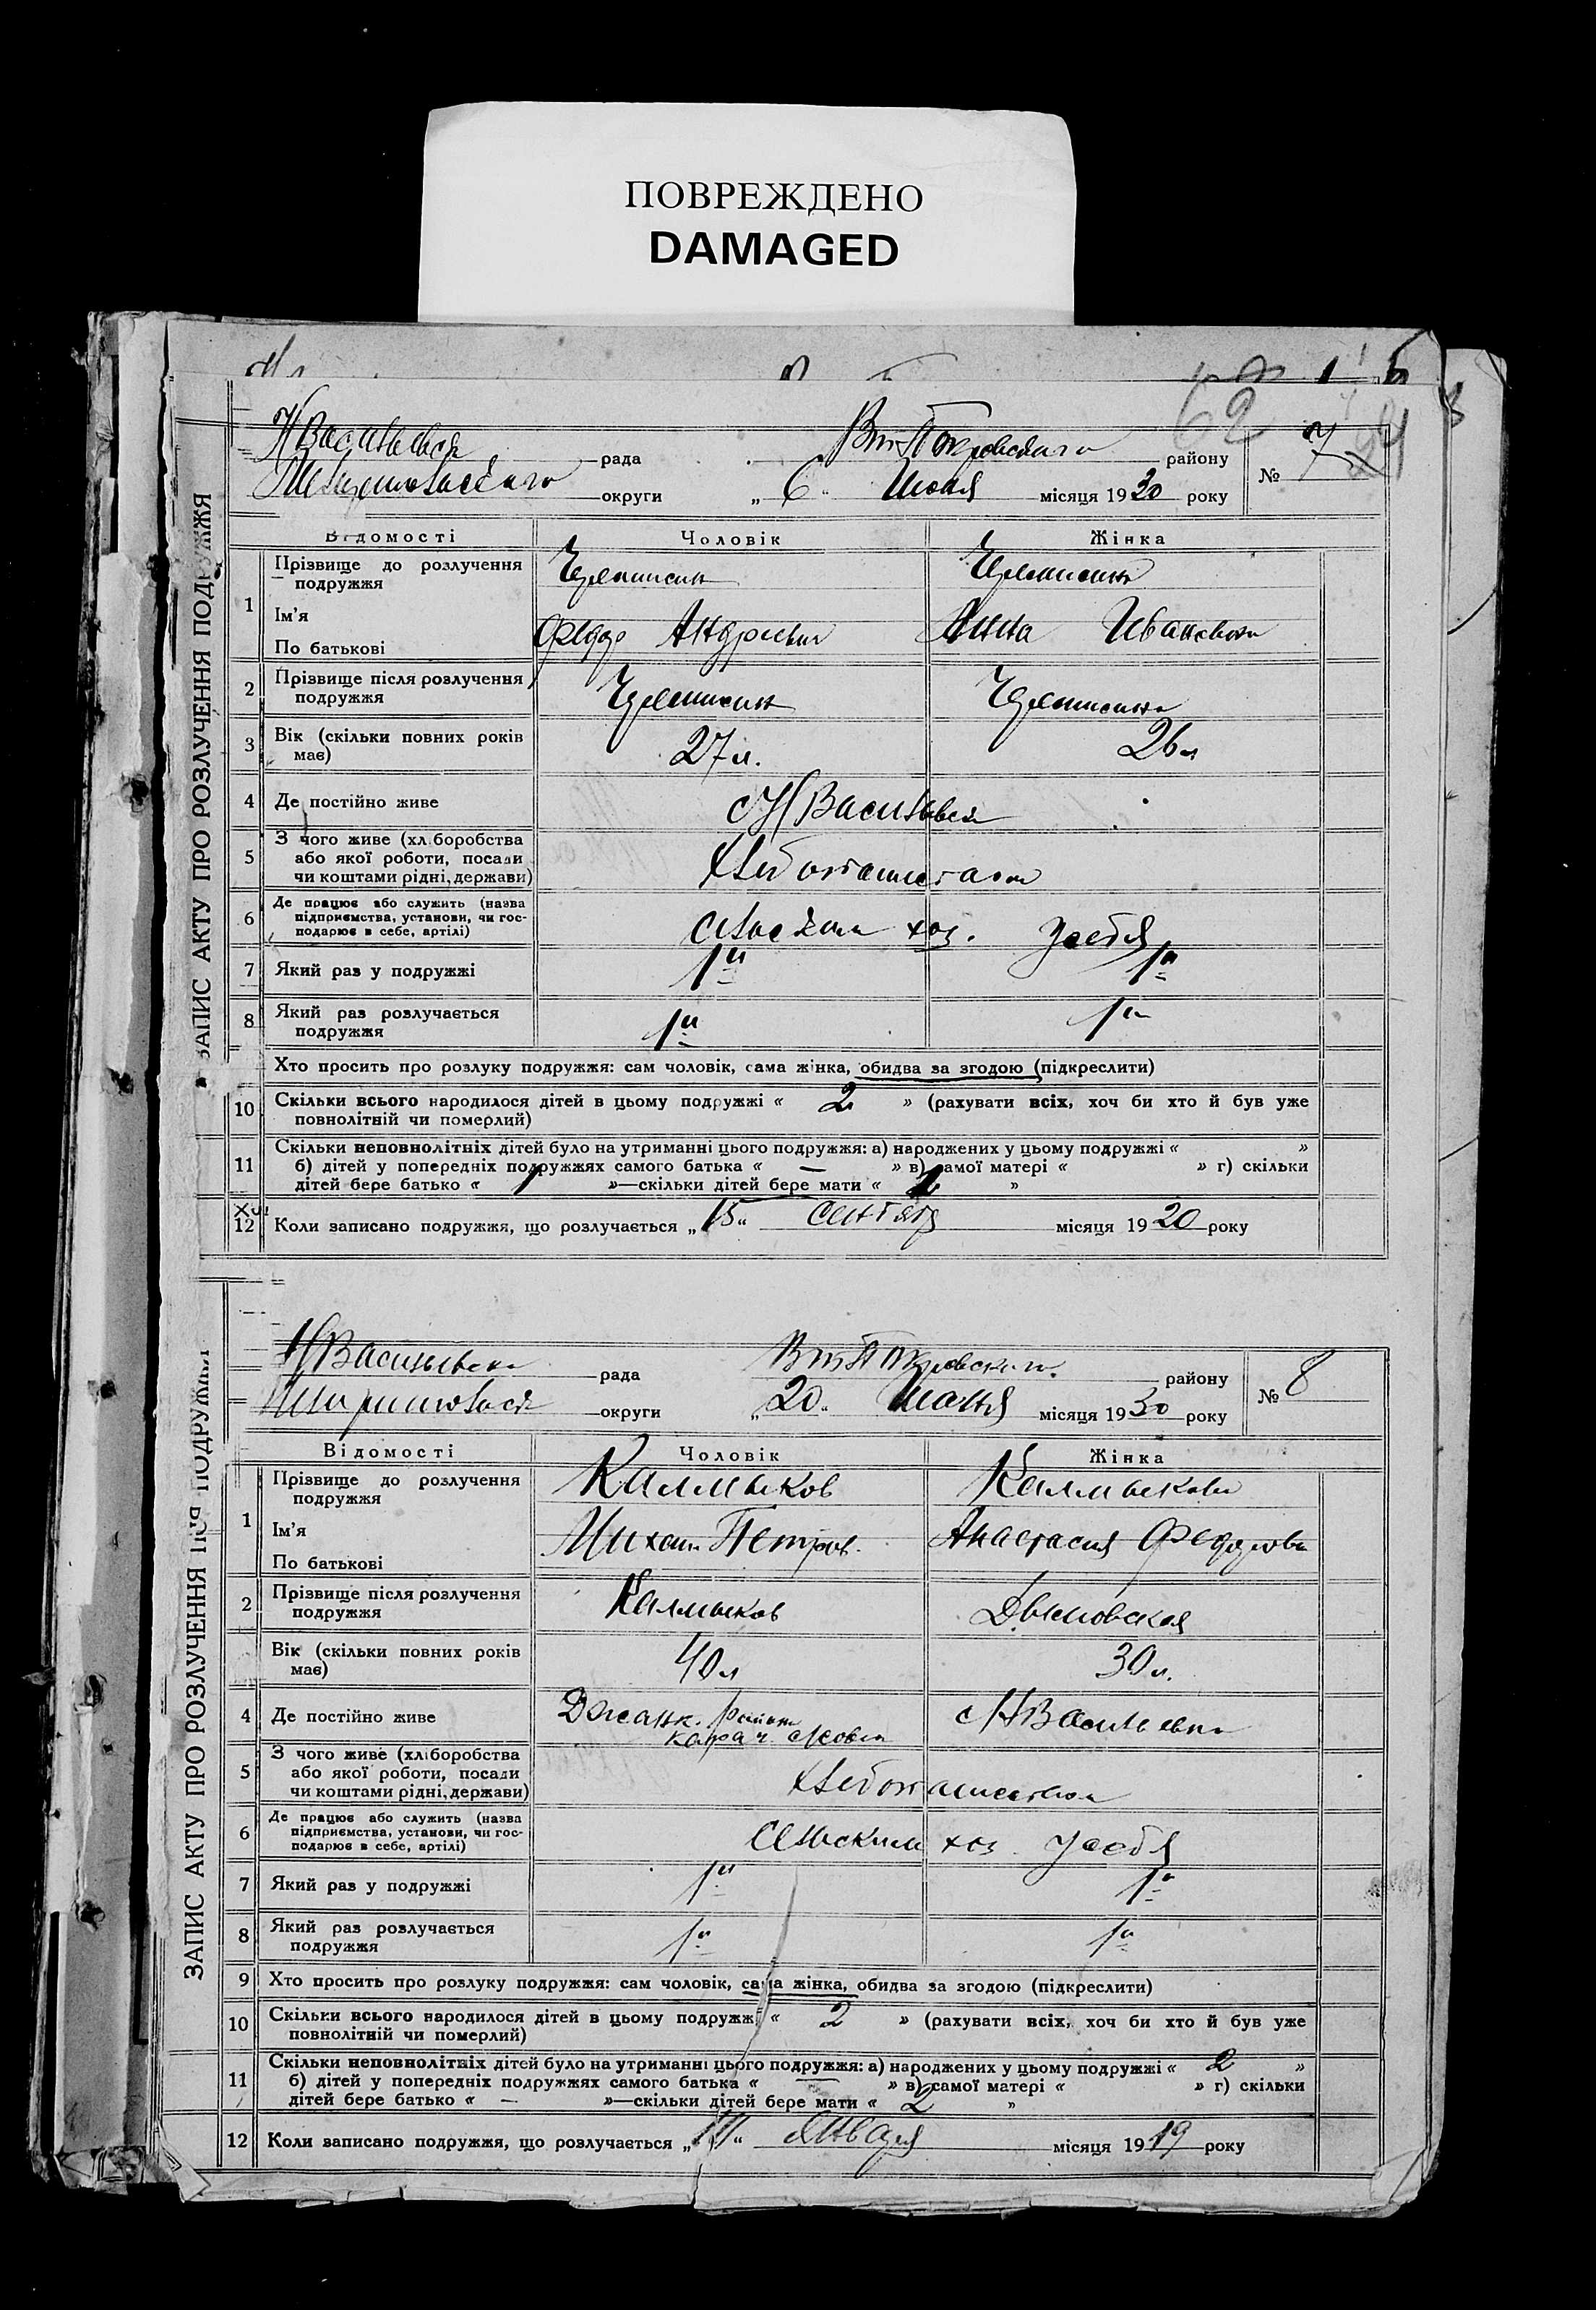 ПОВРЕЖДЕНО
DAMAGED
62
ЗАПИС АКТУ ПРО РОЗЛУЧЕННЯ ПОДРУЖЖЯ
НВасильевск рада ВтПокровского району № 7
округи „ 6 “ Июня місяця 1930 року
Відомості Чоловік Жінка
1 Прізвище до розлучення
подружжя
Ім'я
По батькові Федор Андреевич Анна Ивановна
2 Прізвище після розлучення
подружжя
3 Вік (скільки повних років 27 л. 26 л
має)
4 Де постійно живе с НВасильевка
5 З чого живе (хліборобства
або якої роботи, посади
чи коштами рідні, держави)
Хлебопашеством
6 Де працює або служить (назва
підприємства, установи, чи гос-
подарює в себе, артілі)
сельским хоз. у себя
7 Який раз у подружжі 1й 1й
8 Який раз розлучається 1й 1й
подружжя
Хто просить про розлуку подружжя: сам чоловік, сама жінка, обидва за згодою (підкреслити)
10 Скільки всього народилося дітей в цьому подружжі « 2 » (рахувати всіх, хоч би хто й був уже
повнолітній чи померлий)
11 Скільки неповнолітніх дітей було на утриманні цього подружжя: а) народжених у цьому подружжі « »
б) дітей у попередніх подружжях самого батька « — » в) самої матері « » г) скільки
дітей бере батько « 1 »—скільки дітей бере мати « »
12 Коли записано подружжя, що розлучається „ 15 “ Сентяб місяця 1920 року
ЗАПИС АКТУ ПРО РОЗЛУЧЕННЯ ПОДРУЖЖЯ
НВасильевск рада ВтПокровского району № 8
округи „ 20 “ Июня місяця 1930 року
Відомості Чоловік Жінка
1 Прізвище до розлучення Калмыков Калмыкова
подружжя
Ім'я Михаил Петров. Анастасия Федоровн
По батькові
2 Прізвище після розлучення Калмыков
подружжя
Вік (скільки повних років 40 л 30 л.
має)
4 Де постійно живе Джанк. района с НВасильевка
5 З чого живе (хліборобства
або якої роботи, посади
чи коштами рідні, держави)
Хлебопашеством
6 Де працює або служить (назва
підприємства, установи, чи гос-
подарює в себе, артілі)
Сельским хоз. у себя
7 Який раз у подружжі 1й 1й
8 Який раз розлучається 1й 1й
подружжя
9 Хто просить про розлуку подружжя: сам чоловік, сама жінка, обидва за згодою (підкреслити)
10 Скільки всього народилося дітей в цьому подружжі « 2 » (рахувати всіх, хоч би хто й був уже
повнолітній чи померлий)
11 Скільки неповнолітніх дітей було на утриманні цього подружжя: а) народжених у цьому подружжі « 2 »
б) дітей у попередніх подружжях самого батька « — » в) самої матері « » г) скільки
дітей бере батько « — »—скільки дітей бере мати « 2 »
12 Коли записано подружжя, що розлучається „ “ Января місяця 1919 року